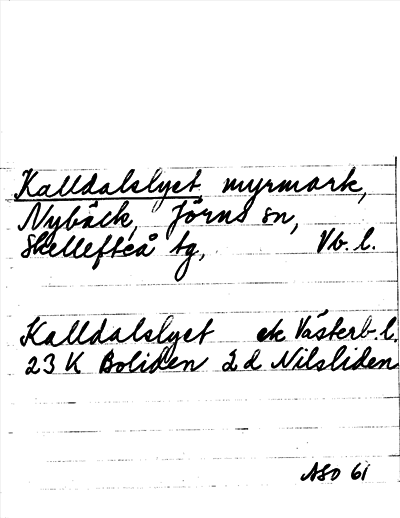 Kalldalslyet, myrmark,
Nybäck, Jörns sn,
Skellefteå tg, Vb. l.
Kalldalslyet ek Västerb. l.
23 K Boliden 2 d Nilsliden
ASO 61